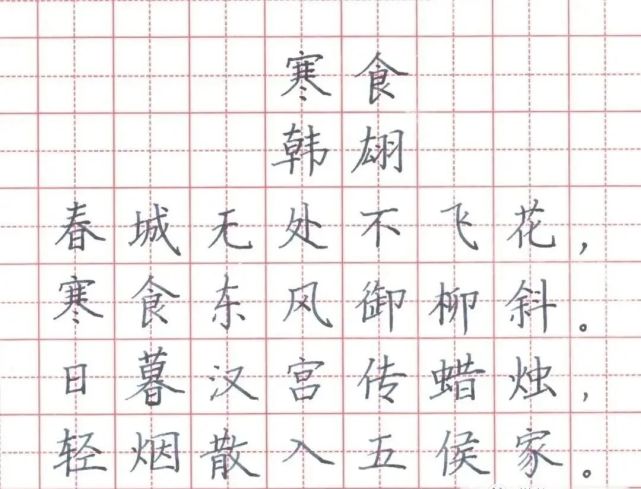 寒食
韩翃
春城无处不飞花，
寒食东风御柳斜。
日暮汉宫传蜡烛，
轻烟散入五侯家。